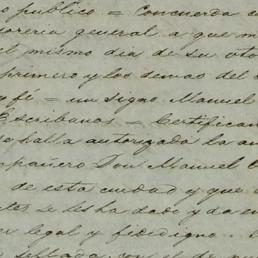 o publico = Concuerda c
oreria general a que m
el mismo dia de su oto
primero y los demas del
y fé = un signo. Manuel
Escribanos = Certifican
se halla autorizada la an
mpañero Don Manuel
de esta ciudad y que
les se les ha dado y da en
er legal y fidedigno.
sellada con el de nu